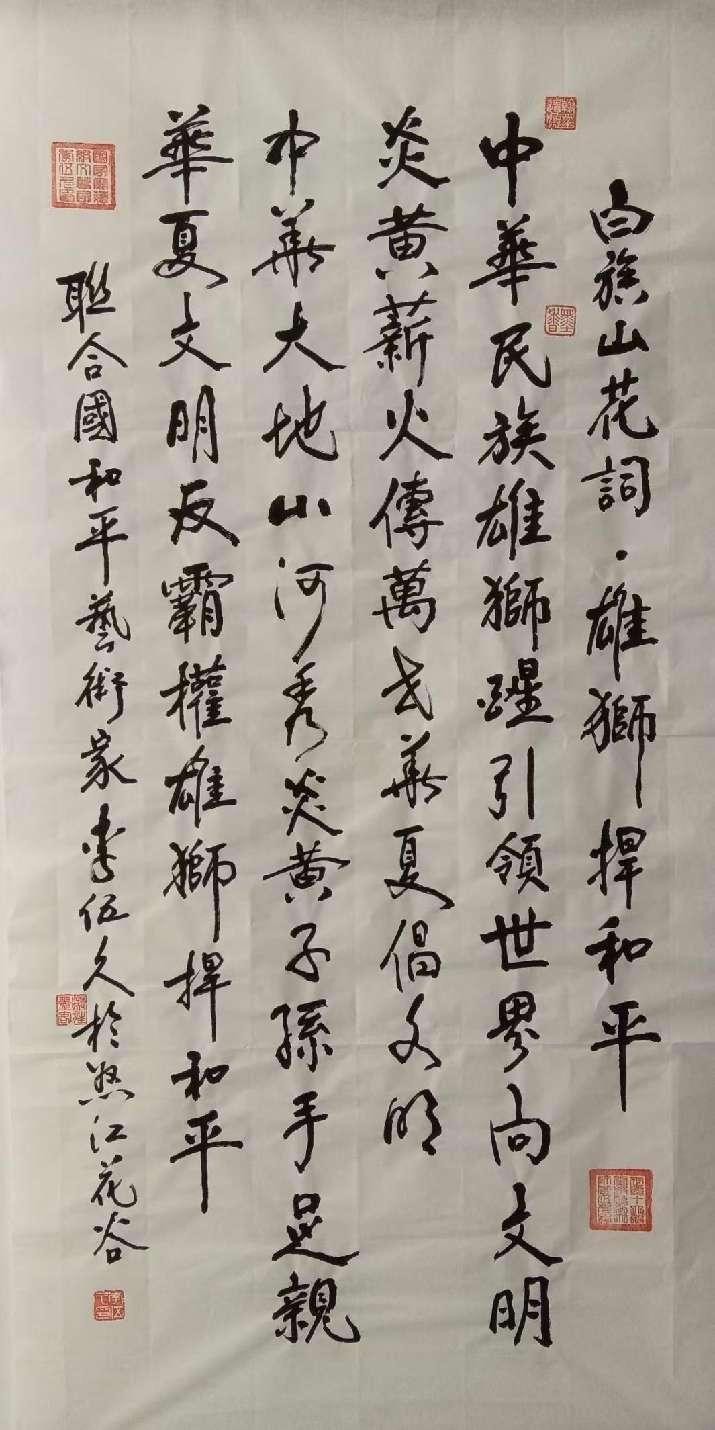 白族山花詞·雄獅捍和平
中華民族雄獅醒引領世界向文明
炎黄薪火傳萬古華夏倡文明
中華大地山河秀炎黄子孫手足親
華夏文明反霸權雄獅捍和平
聯合國和平藝術家李伍久於怒江花谷